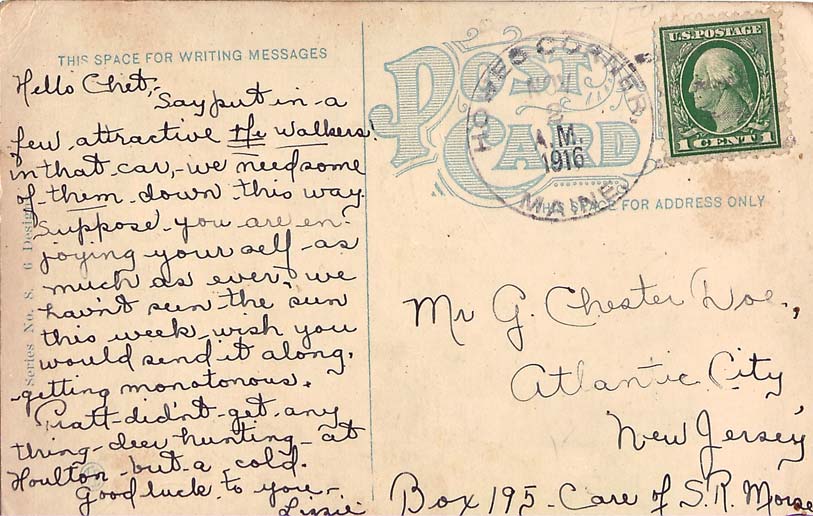 THIS SPACE FOR WRITING MESSAGES
Hello Chet,-
Say put in a
few attractive Hi Walkers!
in that car,-we need some
of them down this way.
Suppose you are en-
joying your self as
much as ever, we
havn't seen the sun
this week, wish you
would send it along,
getting monotonous.
Pratt didn't get any
thing deer hunting at
Houlton but a cold.
Good luck to you-
Lizzie
Series No. 8. 6 Desig
POST
CARD
HOWES CORNER
NOV
A.M.
1916
MAINE
U.S. POSTAGE
1 CENT 1
THIS SPACE FOR ADDRESS ONLY
Mr G. Chester Doe.,
Atlantic City
New Jersey
Box 195 - Care of S.R. Morse